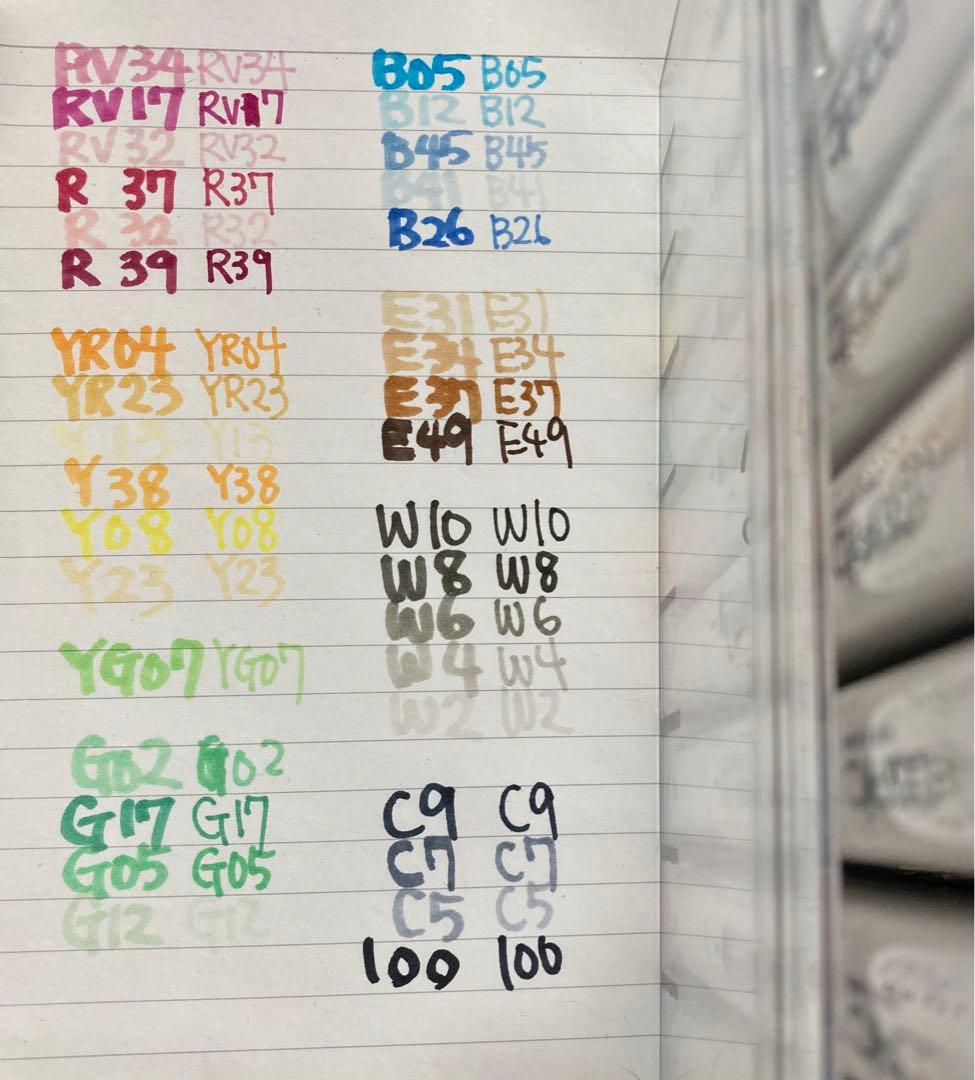 RV34 RV34
RV17 RV17
RV32 RV32
R 37 R37
R 32 R32
R 39 R39
YR04 YR04
YR23 YR23
Y13 Y13
Y38 Y38
Y08 Y08
Y23 Y23
YG07 YG07
G02 G02
G17 G17
G05 G05
G12 G12
B05 B05
B12 B12
B45 B45
B41 B41
B26 B26
E31 E31
E34 E34
E37 E37
E49 E49
W10 W10
W8 W8
W6 W6
W4 W4
W2 W2
C9 C9
C7 C7
C5 C5
100 100